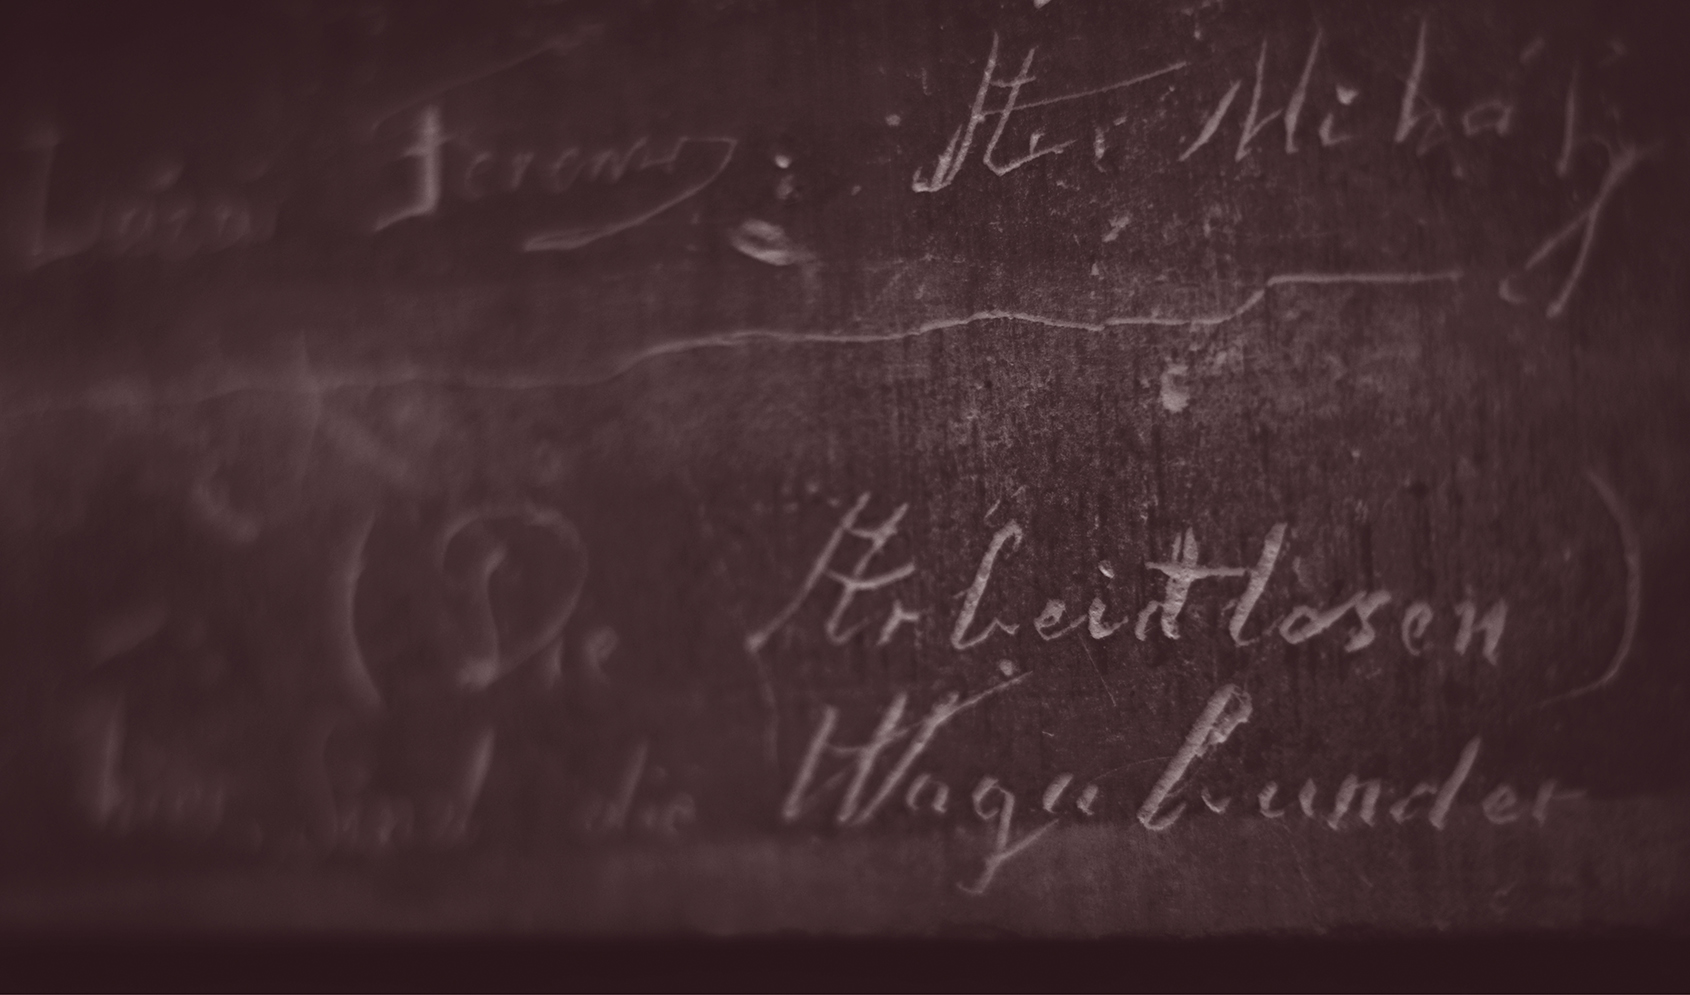 Ferencz Her Mihály
(Die Arbeitlosen)
und die Wagabunder